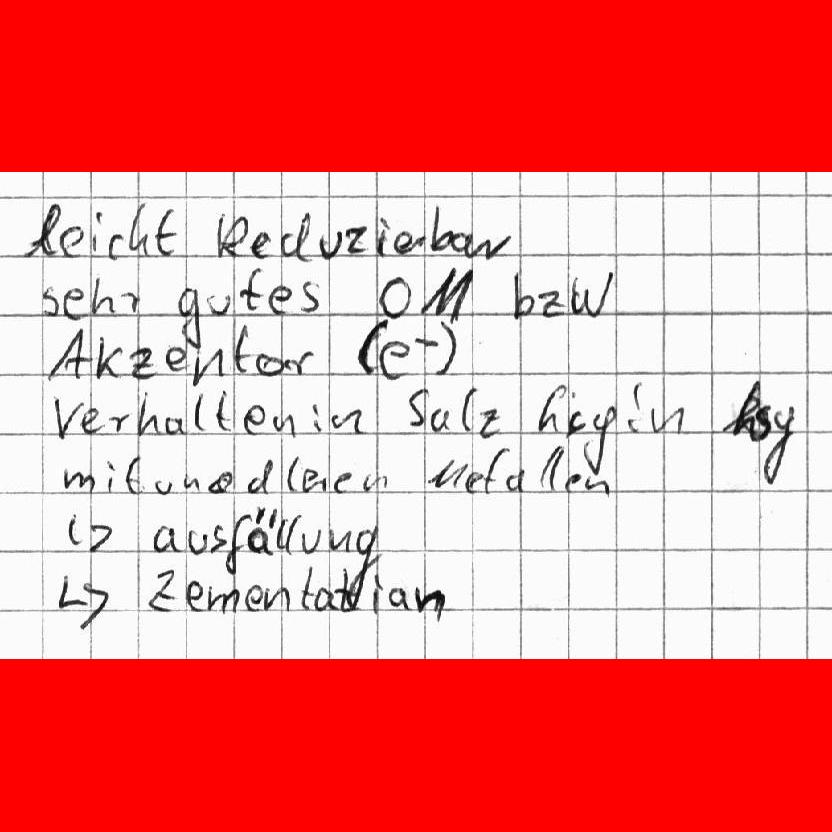 leicht Reduzierbar
sehr gutes OM bzW
Akzentor (e-)
Verhalten in Salz
mit unedleren Metallen
↳ ausfällung
↳ Zementation